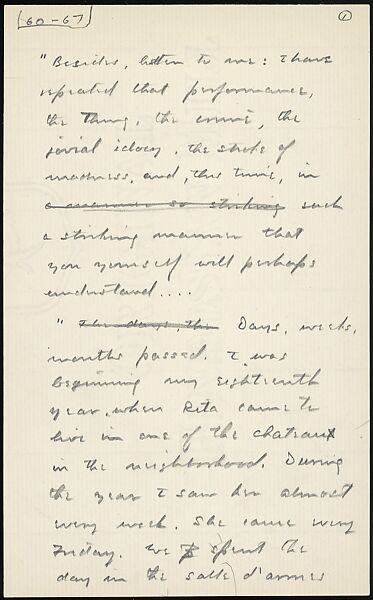 (60-67)
1
"Besides, listen to me: I have
repeated that performance,
the thing, the crime, the
jovial idiocy, the stroke of
madness, and, this time, in
a manner so striking such
a striking manner that
you yourself will perhaps
understand....
" The days, the Days, weeks,
months passed. I was
beginning my eighteenth
year, when Rita came to
live in one of the chateaux
in the neighborhood. During
the year I saw her almost
every week. She came every
Friday. We spent the
day in the salle d'armes